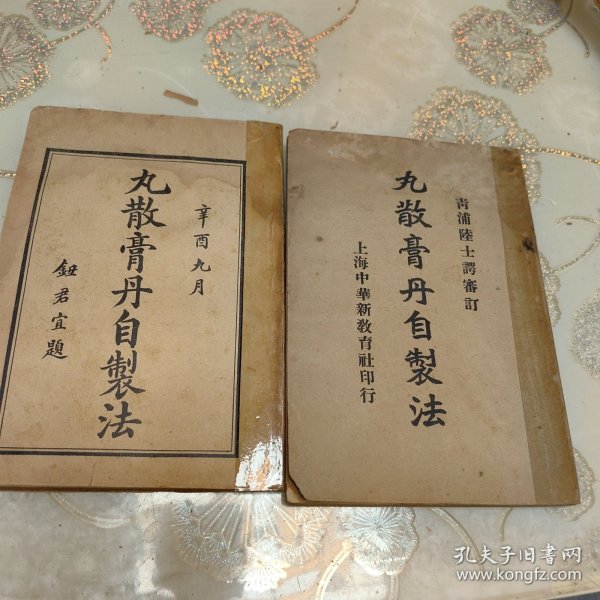 辛酉九月
丸散膏丹自製法
鈕君宜題
青浦陸士諤審訂
丸散膏丹自製法
上海中華新教育社印行
孔夫子旧书网
www.kongfz.com